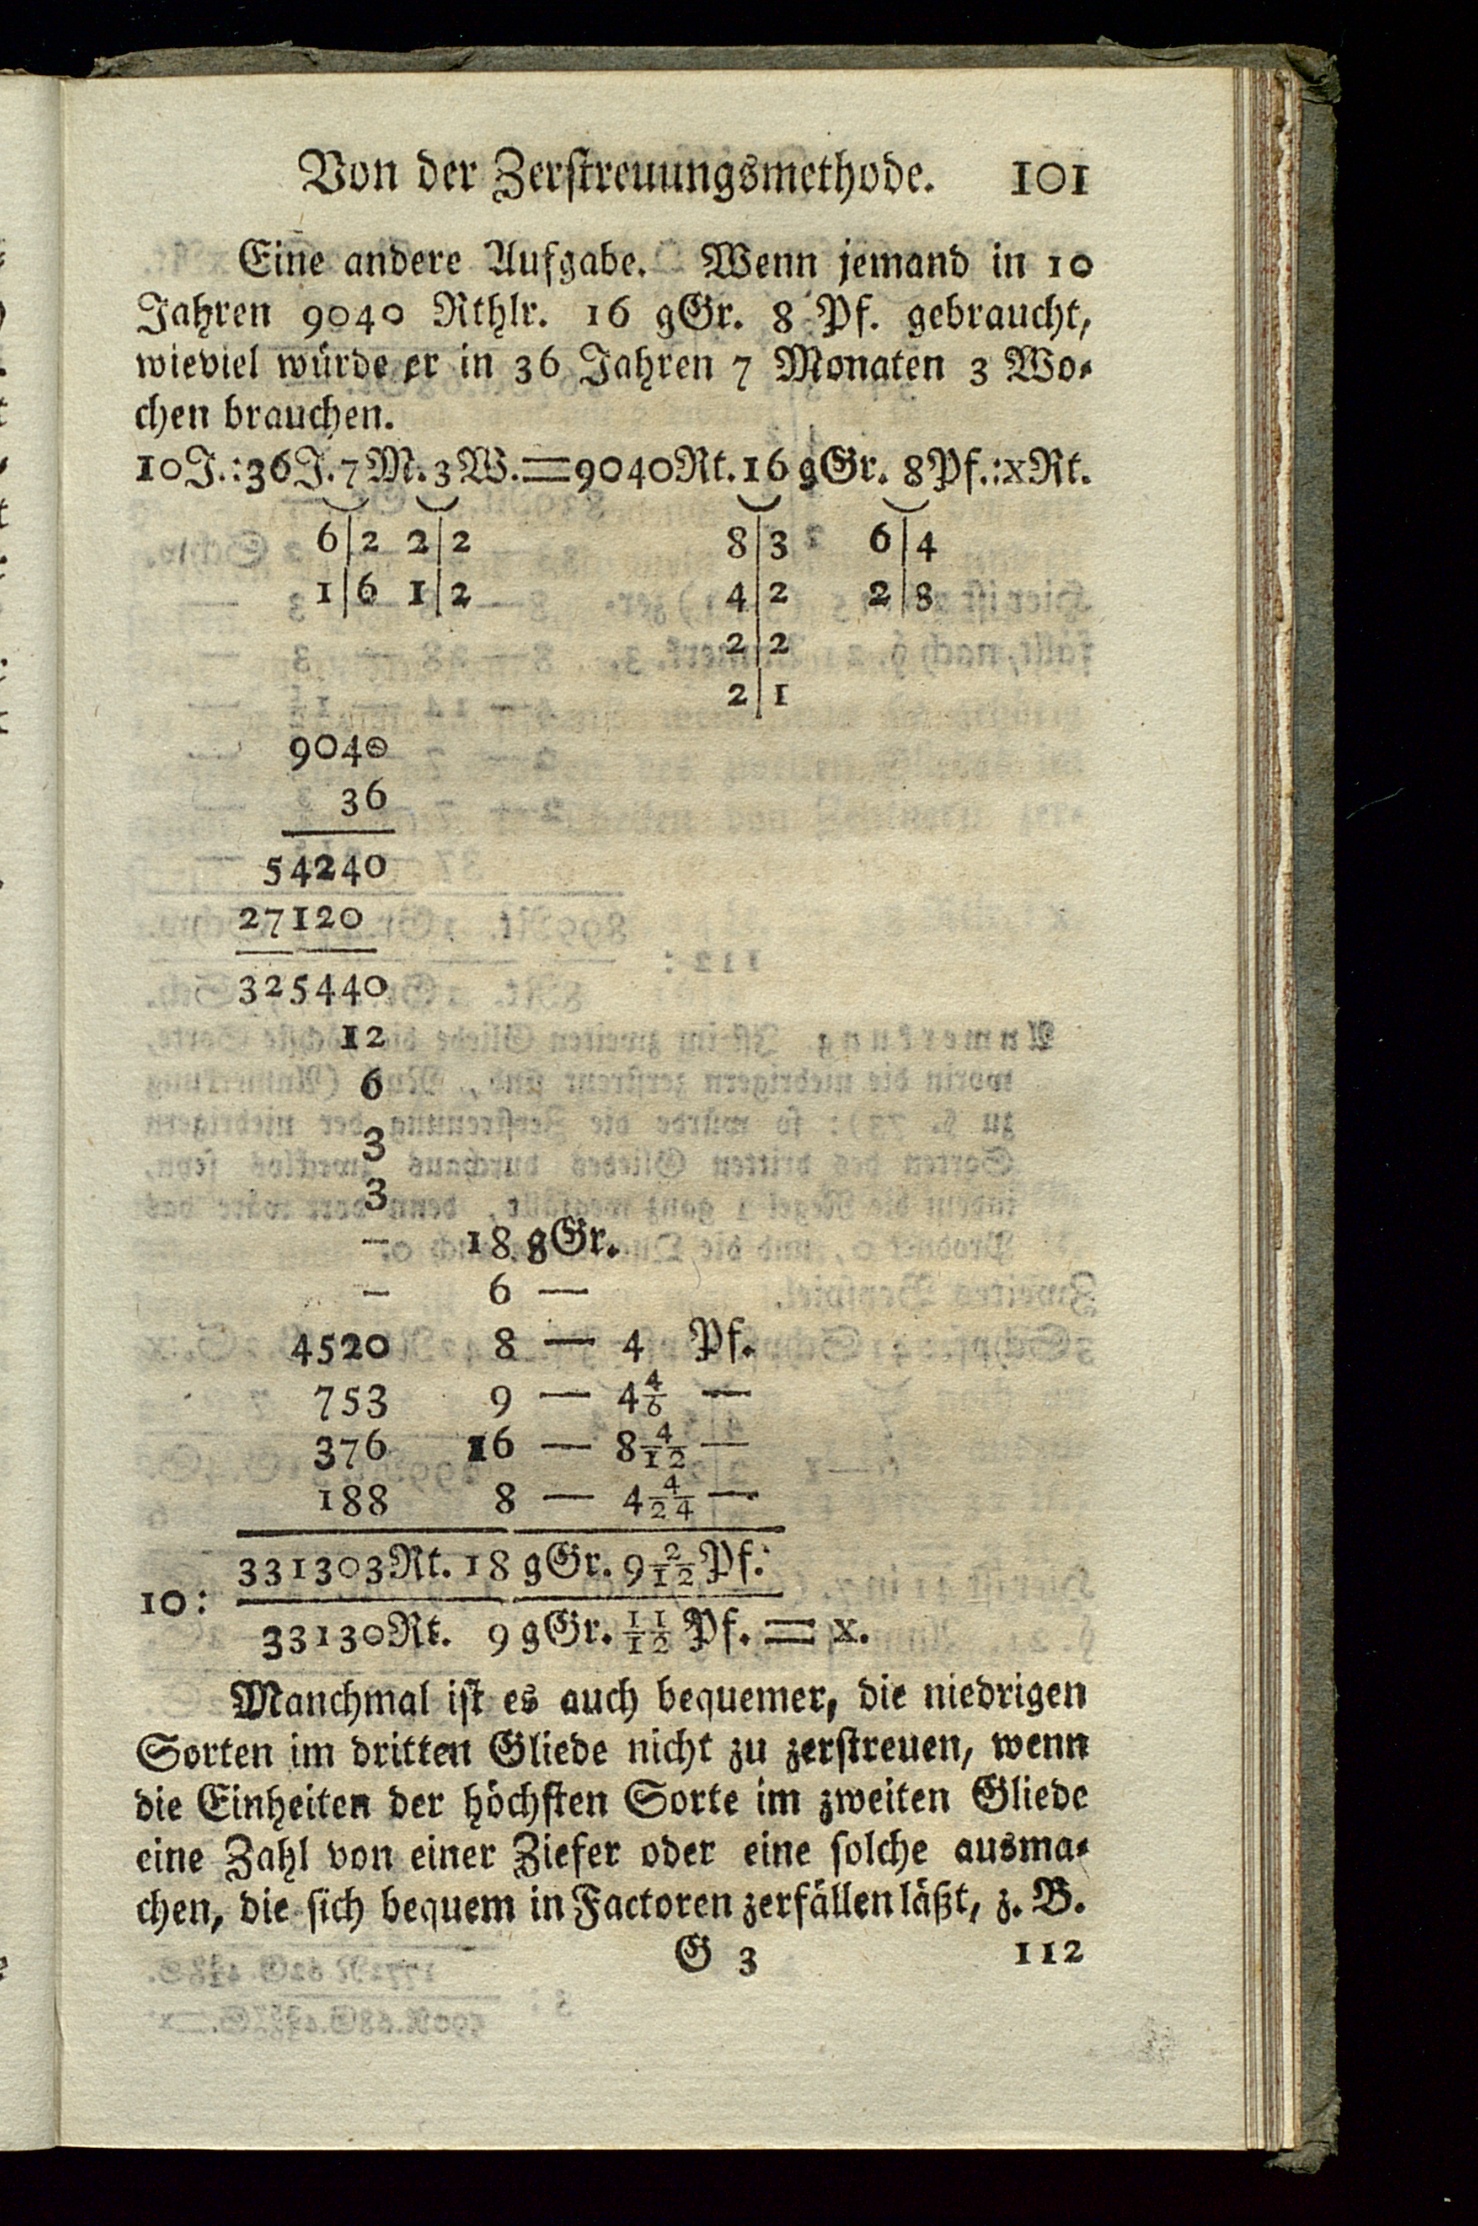 Von der Zerstreuungsmethode. 101
Eine andere Aufgabe. Wenn jemand in 10
Jahren 9040 Rthlr. 16 gGr. 8 Pf. gebraucht,
wieviel würde er in 36 Jahren 7 Monaten 3 Wo-
chen brauchen.
10J.:36J.7M.3W.=9040Rt.16gGr. 8Pf.:xRt.
6|2 2|2 8|3 6|4
1|6 1|2 4|2 2|8
2|2
2|1
9040
36
54240
27120
325440
12
6
3
3
– 18 gGr.
– 6 —
4520 8 — 4 Pf.
753 9 — 4 4/6 —
376 16 — 8 4/12 —
188 8 — 4 4/24 —
331303Rt. 18 gGr. 9 2/12 Pf.
10:
33130Rt. 9 gGr. 11/12 Pf. = x.
Manchmal ist es auch bequemer, die niedrigen
Sorten im dritten Gliede nicht zu zerstreuen, wenn
die Einheiten der höchsten Sorte im zweiten Gliede
eine Zahl von einer Ziefer oder eine solche ausma-
chen, die sich bequem in Factoren zerfällen läßt, z. B.
G 3 112